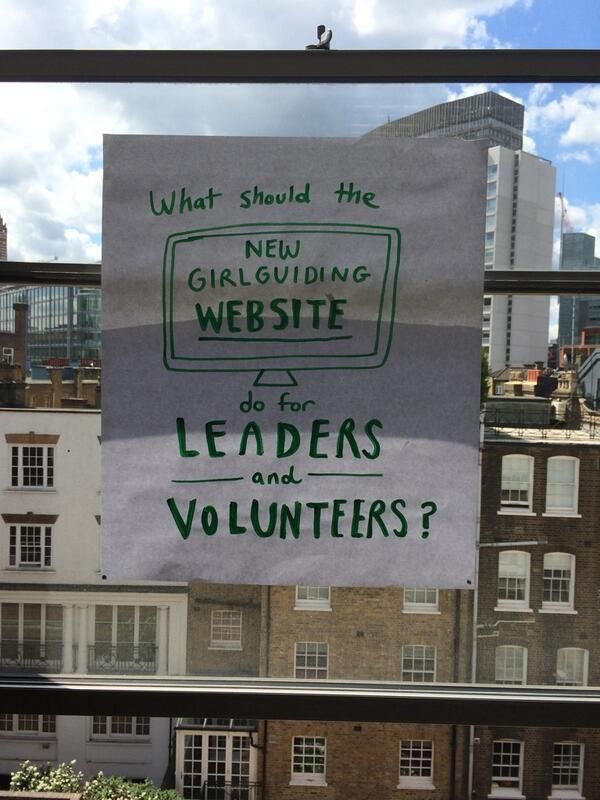 What should the
NEW
GIRLGUIDING
WEBSITE
do for
LEADERS
and
VOLUNTEERS?